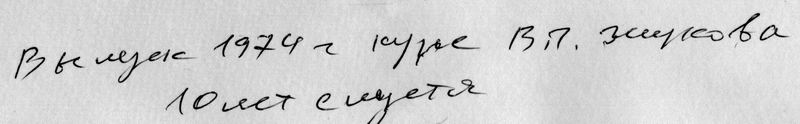 Выпуск 1974 г курс В.П. Жукова
10 лет спустя